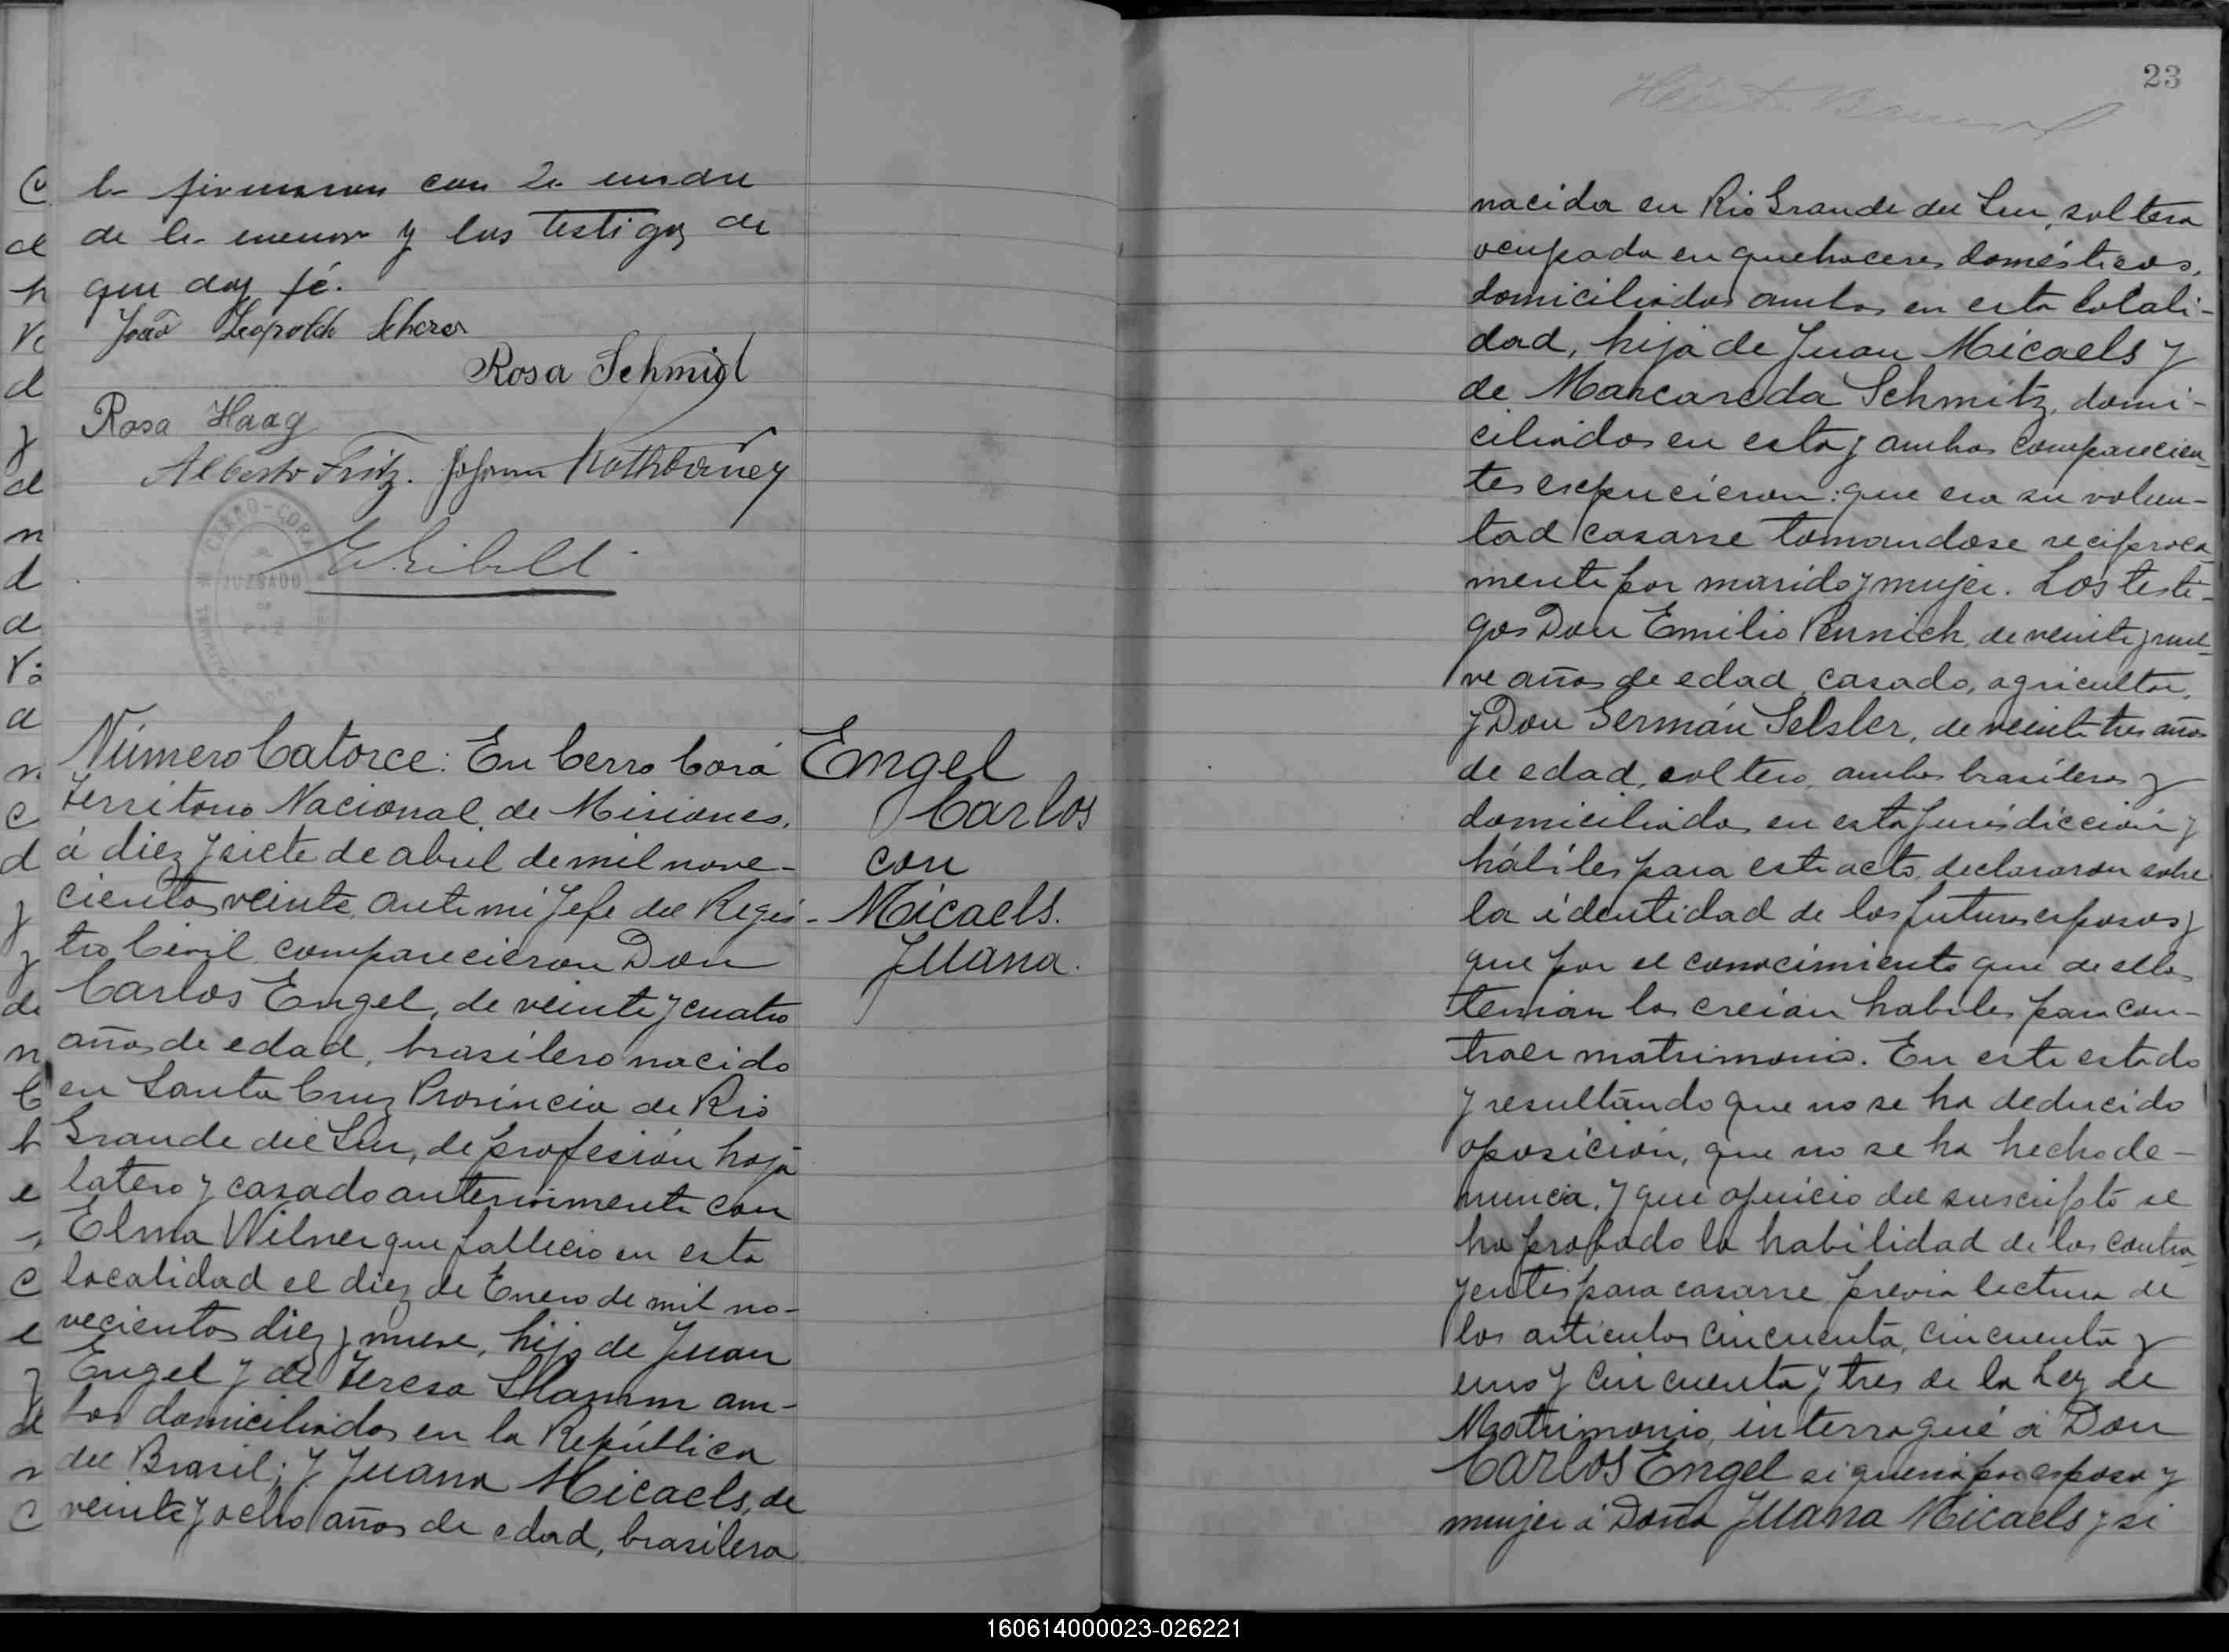 lo firmaron con la madre
de la menor y los testigos de
que doy fé.
João Leopoldo Scherer
Rosa Schmidt
Rosa Haag
Alberto Fritz. Johann
CERRO-CORA
JUZGADO
DE
PAZ
Número Catorce: En Cerro Corá
Territorio Nacional de Misiones,
á diez y siete de abril de mil nove-
cientos veinte, ante mi Jefe del Regis-
tro Civil comparecieron Don
Carlos Engel, de veinte y cuatro
años de edad, brasilero nacido
en Santa Cruz Provincia de Rio
Grande del Sur, de profesión hoja
latero y casado anteriormente con
Elma Wilner que fallecio en esta
localidad el diez de Enero de mil no-
vecientos diez y nueve, hijo de Juan
Engel y de Teresa am-
bos domiciliados en la República
del Brasil; y Juana Micaels, de
veinte y ocho años de edad, brasilera
Engel
Carlos
con
Micaels.
Juana.
23
nacida en Rio Grande del Sur, soltera
ocupada en quehaceres domésticos,
domiciliados ambos en esta locali-
dad, hija de Juan Micaels y
de Marcareda Schmitz, domi-
ciliados en esta y ambos comparecien-
tes expucieron: que era su volun-
tad casarse tomandose reciproca
mente por marido y mujer. Los testi-
gos Don Emilio Pennich, de veinte y nue-
ve años de edad, casado, agricultor,
y Don Germán Selsler, de veinte tres años
de edad, soltero, ambos brasileros y
domiciliados en esta Jurisdicción y
hábiles para este acto, declararon sobre
la identidad de los futuros esposos y
que por el conocimiento que de ellos
tenian los creian habiles para con-
traer matrimonio. En este estado
y resultando que no se ha deducido
oposición, que no se ha hecho de-
nuncia, y que a juicio del suscripto se
ha probado la habilidad de los contra-
yentes para casarse, previa lectura de
los articulos cincuenta, cincuenta y
uno y cincuenta y tres de la Ley de
Matrimonio, interrogué á Don
Carlos Engel si queria por esposa y
mujer á Doña Juana Micaels y si
160614000023-026221